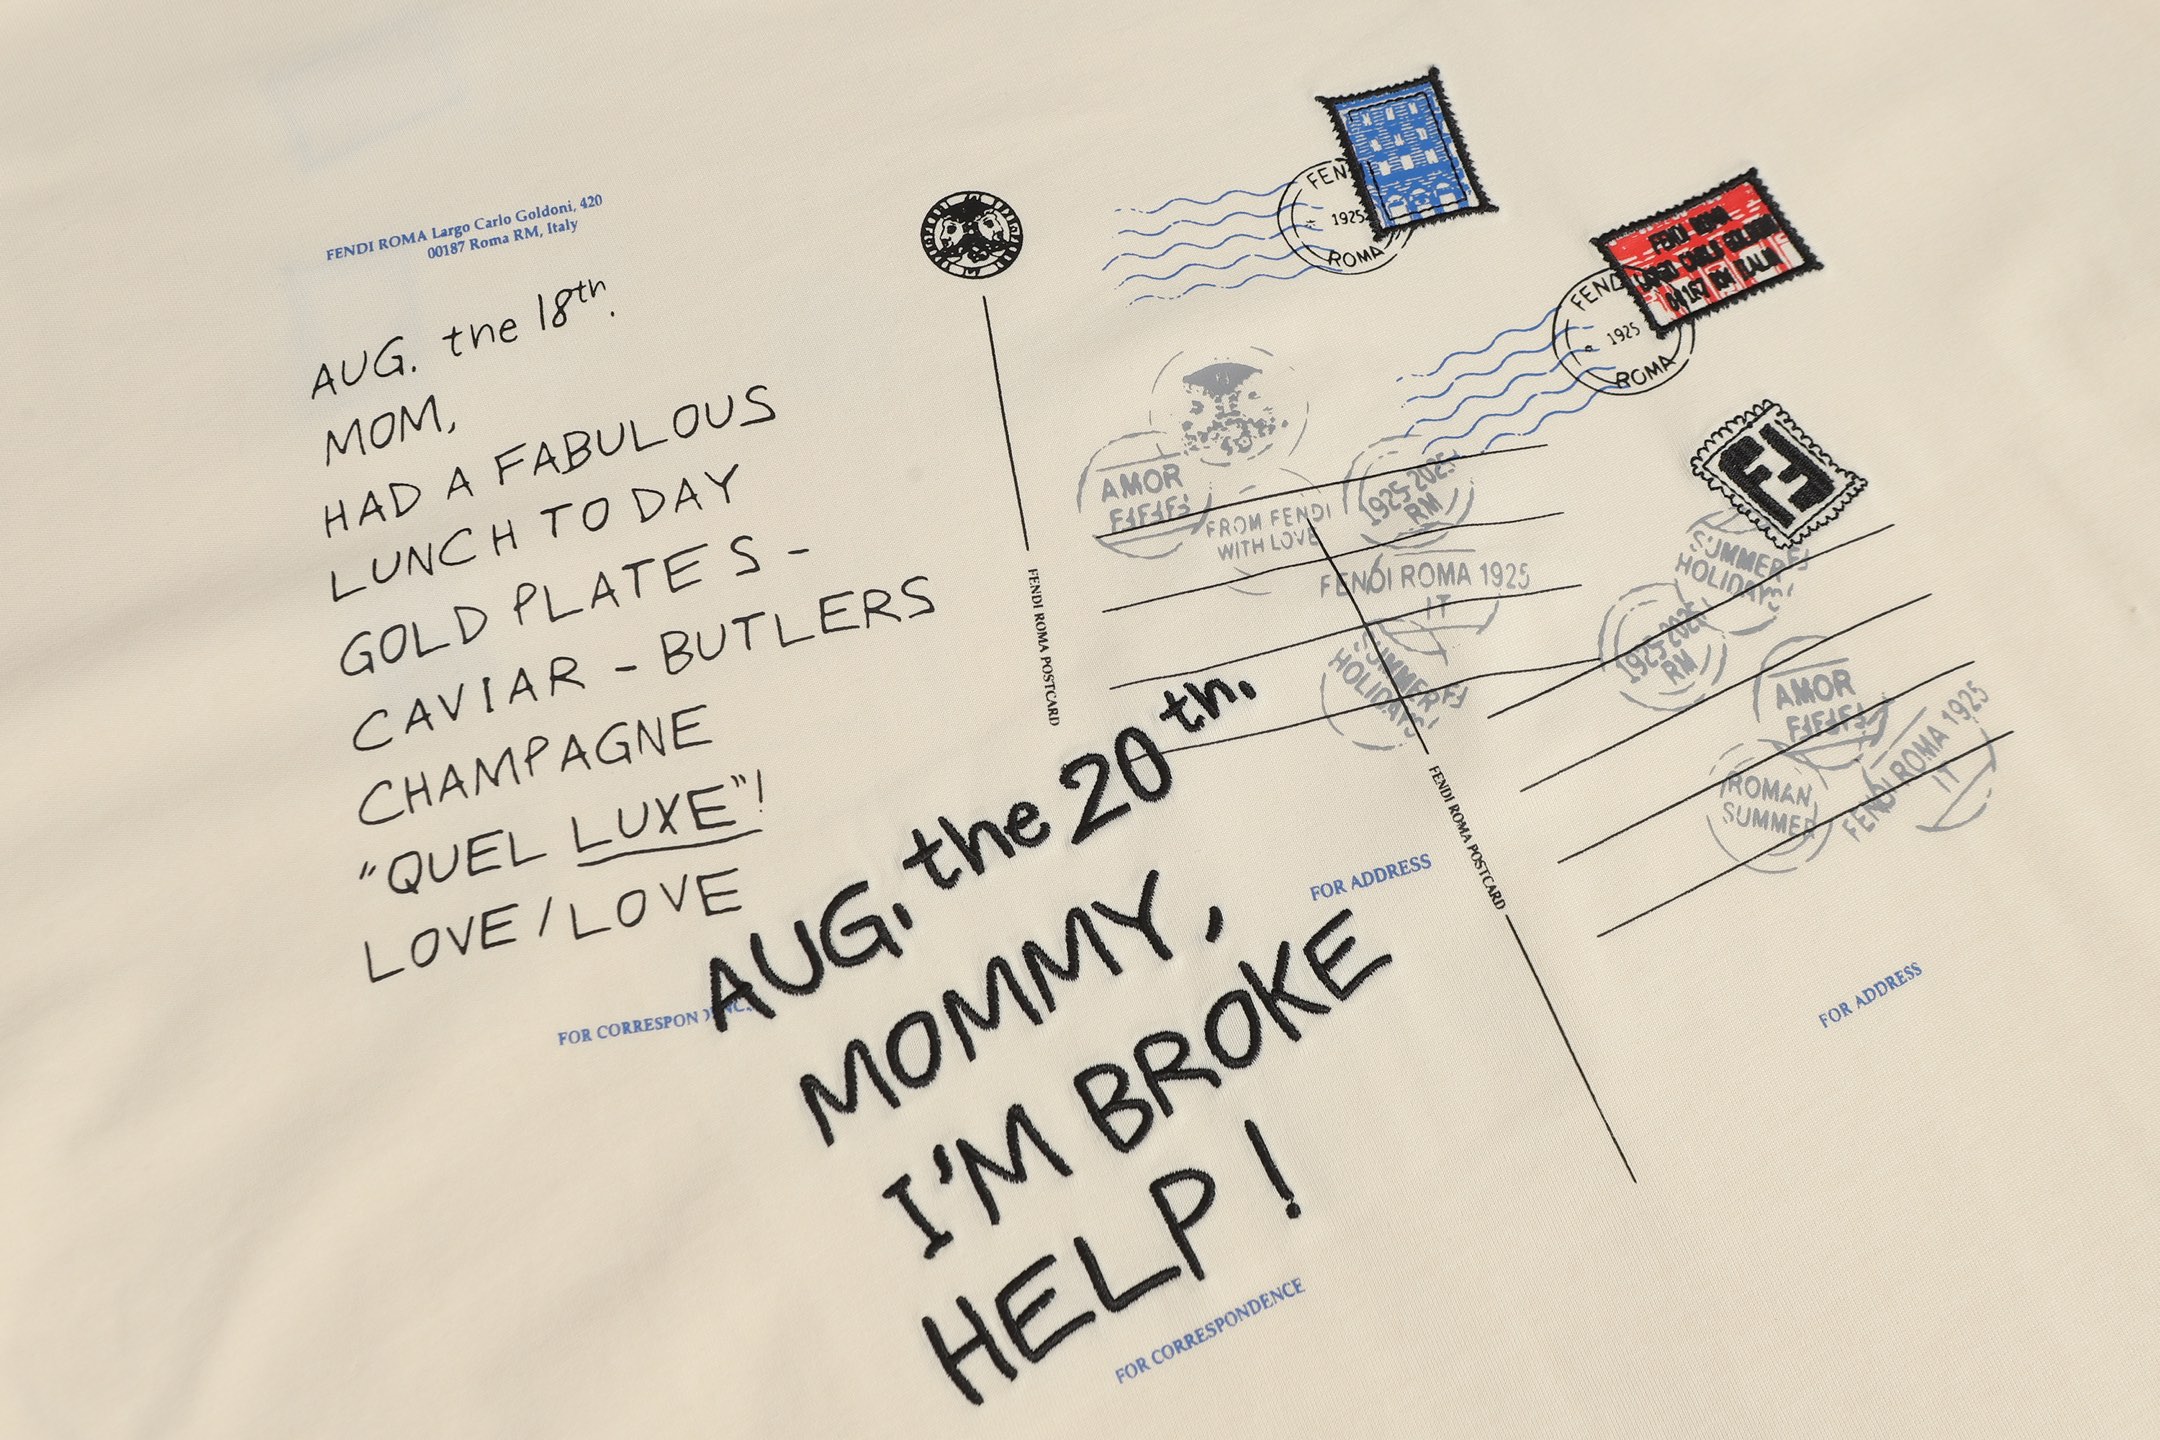 FENDI ROMA Largo Carlo Goldoni, 420
00187 Roma RM, Italy
AUG. the 18th.
MOM,
HAD A FABULOUS
LUNCH TO DAY
GOLD PLATES -
CAVIAR - BUTLERS
CHAMPAGNE
"QUEL LUXE"!
LOVE / LOVE
FOR CORRESPONDENCE
FENDI ROMA POSTCARD
FEN
1925
ROMA
AMOR
FROM FENDI
WITH LOVE
1925-2025
RM
FENDI ROMA 1925
IT
SUMMER
HOLIDAYS!
FOR ADDRESS
AUG. the 20th.
MOMMY,
I'M BROKE
HELP!
FOR CORRESPONDENCE
FENDI ROMA
LARGO CARLO GOLDONI
00187 RM ITALIA
FEND
1925
ROMA
FF
SUMMER
HOLIDAYS!
1925-2025
RM
AMOR
FENDI ROMA 1925
IT
ROMAN
SUMMER
FENDI ROMA POSTCARD
FOR ADDRESS